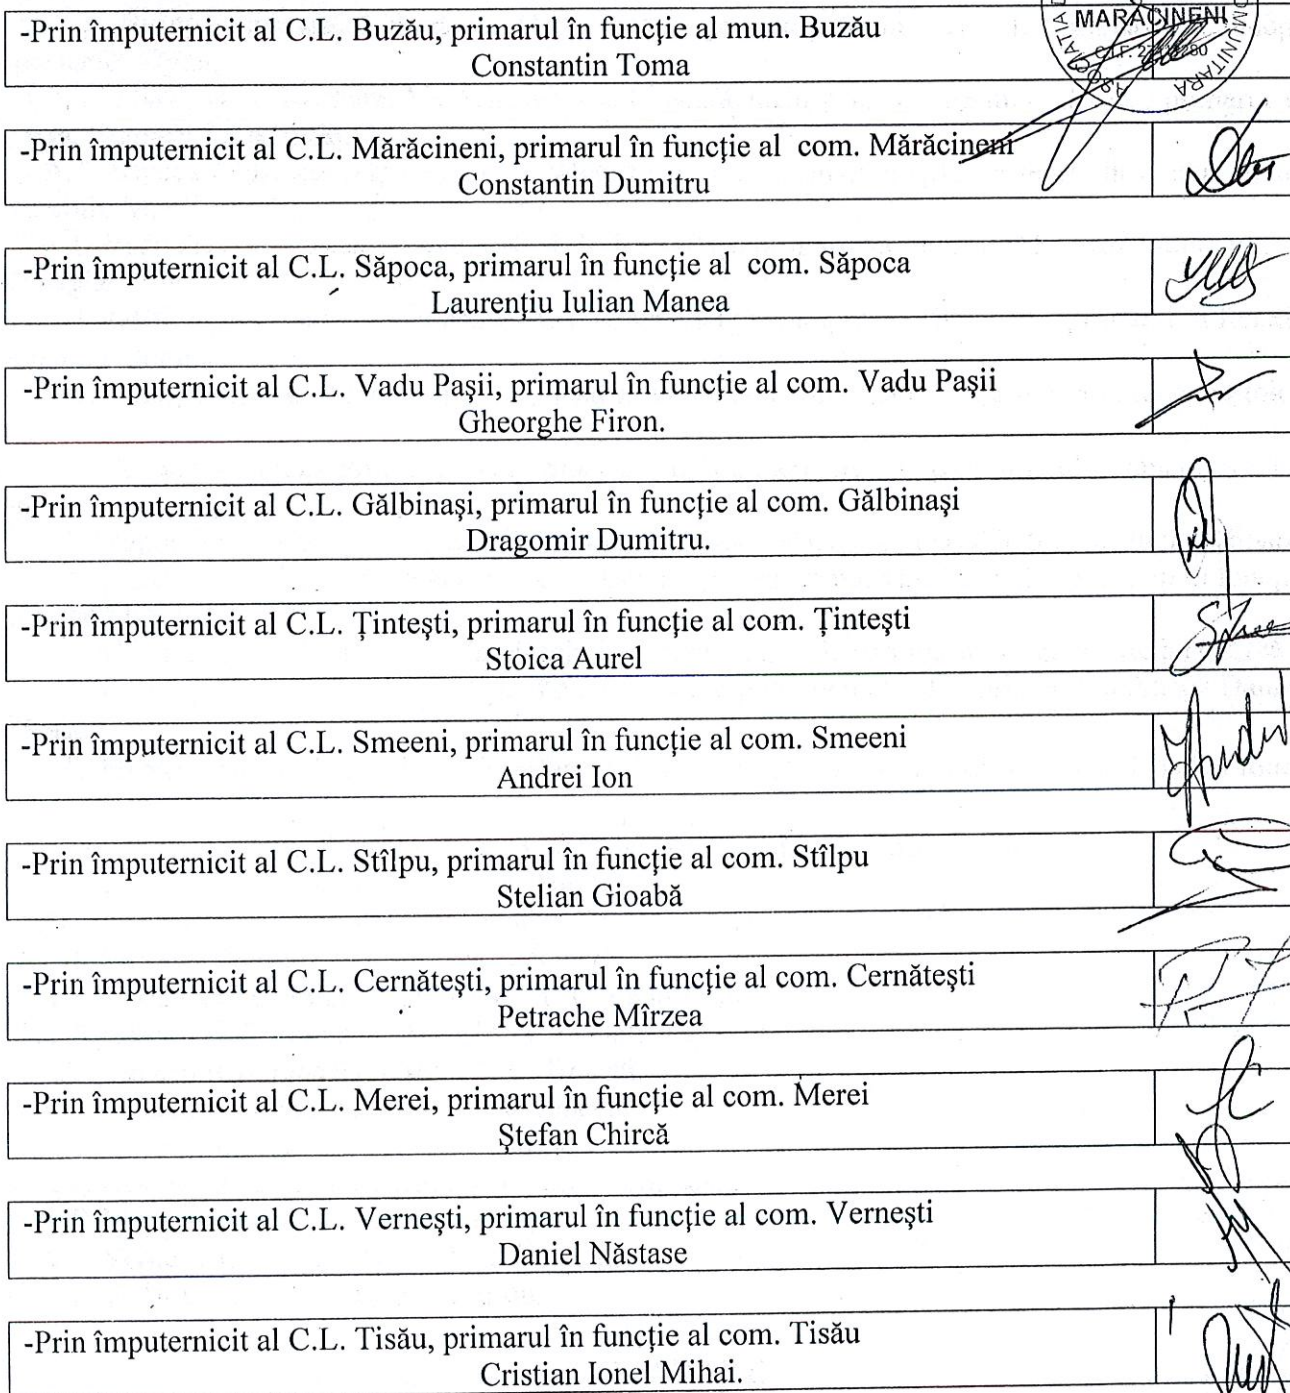 MARACINENI
ASOCIATIA D
OMUNITARA
C.I.F.
-Prin împuternicit al C.L. Buzău, primarul în funcție al mun. Buzău
Constantin Toma
-Prin împuternicit al C.L. Mărăcineni, primarul în funcție al com. Mărăcineni
Constantin Dumitru
-Prin împuternicit al C.L. Săpoca, primarul în funcție al com. Săpoca
Laurențiu Iulian Manea
-Prin împuternicit al C.L. Vadu Pașii, primarul în funcție al com. Vadu Pașii
Gheorghe Firon.
-Prin împuternicit al C.L. Gălbinași, primarul în funcție al com. Gălbinași
Dragomir Dumitru.
-Prin împuternicit al C.L. Țintești, primarul în funcție al com. Țintești
Stoica Aurel
-Prin împuternicit al C.L. Smeeni, primarul în funcție al com. Smeeni
Andrei Ion
-Prin împuternicit al C.L. Stîlpu, primarul în funcție al com. Stîlpu
Stelian Gioabă
-Prin împuternicit al C.L. Cernătești, primarul în funcție al com. Cernătești
Petrache Mîrzea
-Prin împuternicit al C.L. Merei, primarul în funcție al com. Merei
Ștefan Chircă
-Prin împuternicit al C.L. Vernești, primarul în funcție al com. Vernești
Daniel Năstase
-Prin împuternicit al C.L. Tisău, primarul în funcție al com. Tisău
Cristian Ionel Mihai.